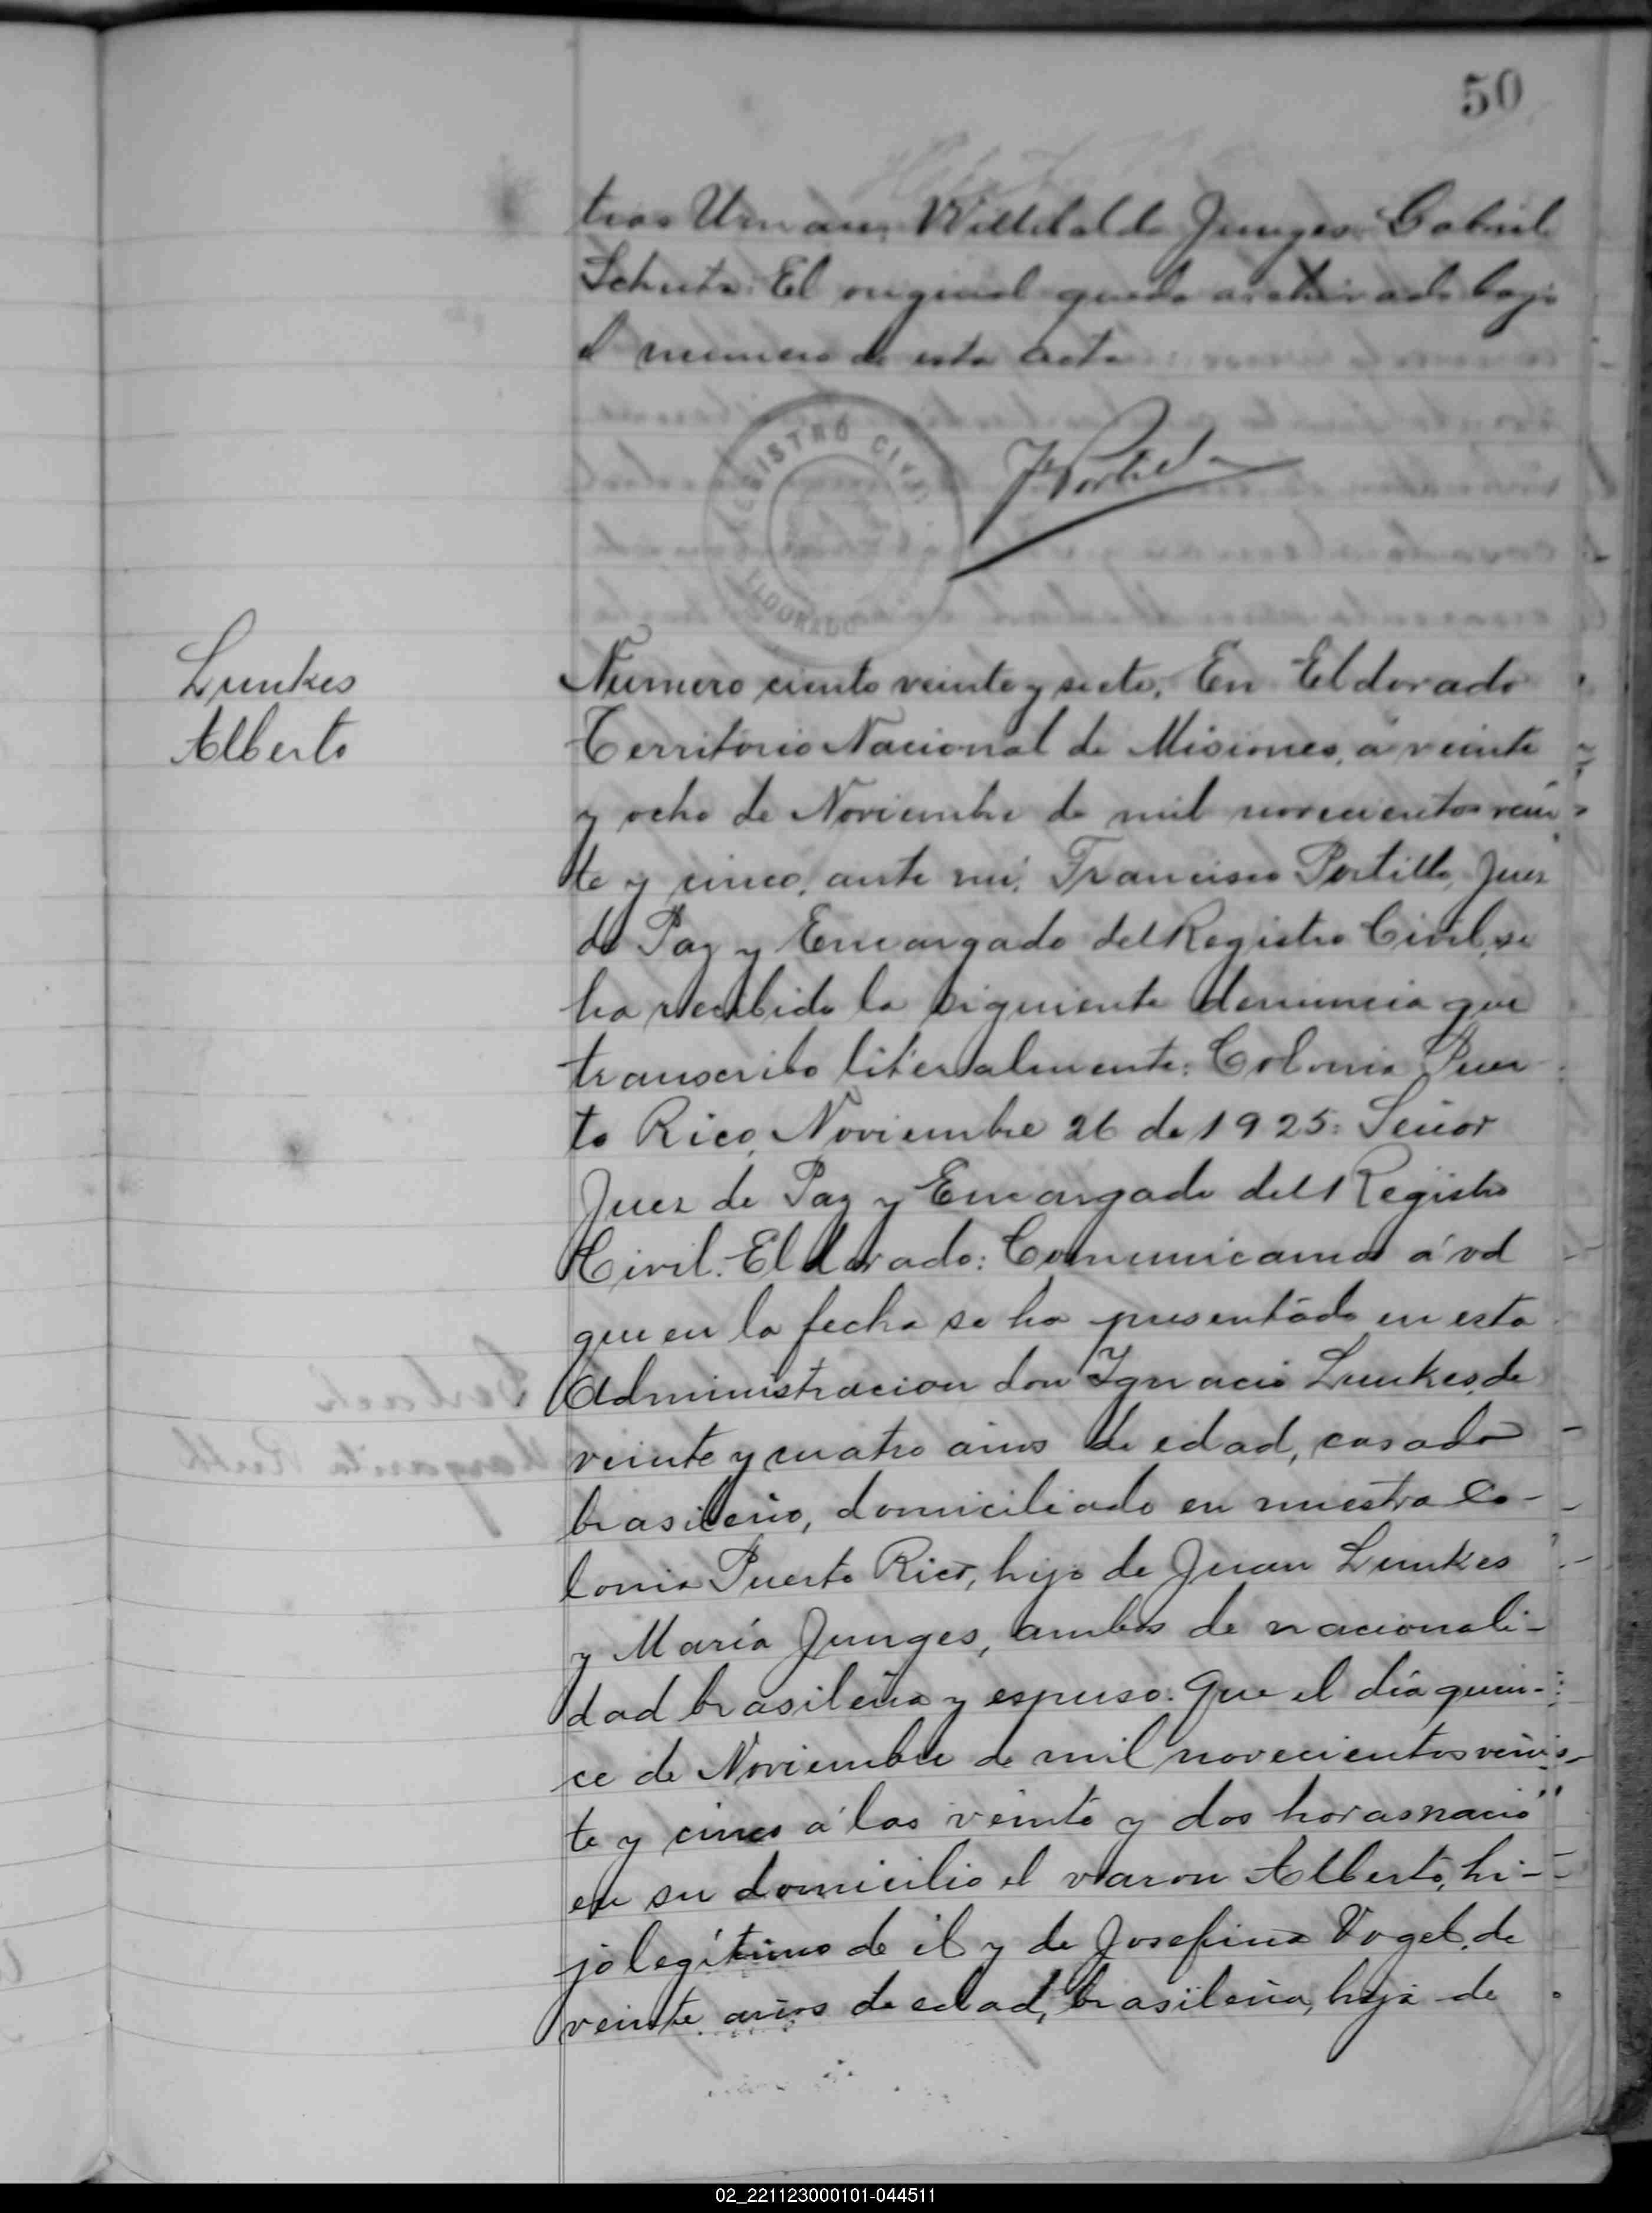 50
tias Urnau, Willibaldo Junges. Gabriel
Schutz. El original queda archivado bajo
el numero de esta acta
REGISTRO CIVIL
ELDORADO
Lunkes
Alberto
Numero ciento veinte y siete, En Eldorado
Territorio Nacional de Misiones, á veinte
y ocho de Noviembre de mil novecientos vein
te y cinco, ante mí, Francisco Portillo, Juez
de Paz y Encargado del Registro Civil, se
ha recibido la siguiente denuncia que
transcribo literalmente: Colonia Puer
to Rico, Noviembre 26 de 1925: Señor
Juez de Paz y Encargado del Registro
Civil. Eldorado: Comunicamos á vd
que en la fecha se ha presentado en esta
Administracion don Ignacio Lunkes, de
veinte y cuatro años de edad, casado
brasileño, domiciliado en nuestra Co-
lonia Puerto Rico, hijo de Juan Lunkes
y María Junges, ambos de nacionali-
dad brasileña y espuso: que el día quin-
ce de Noviembre de mil novecientos vein-
te y cinco á las veinte y dos horas nació
en su domicilio el varon Alberto, hi-
jo legítimo de él y de Josefina Vogel, de
veinte años de edad, brasileña, hija de
02_221123000101-044511